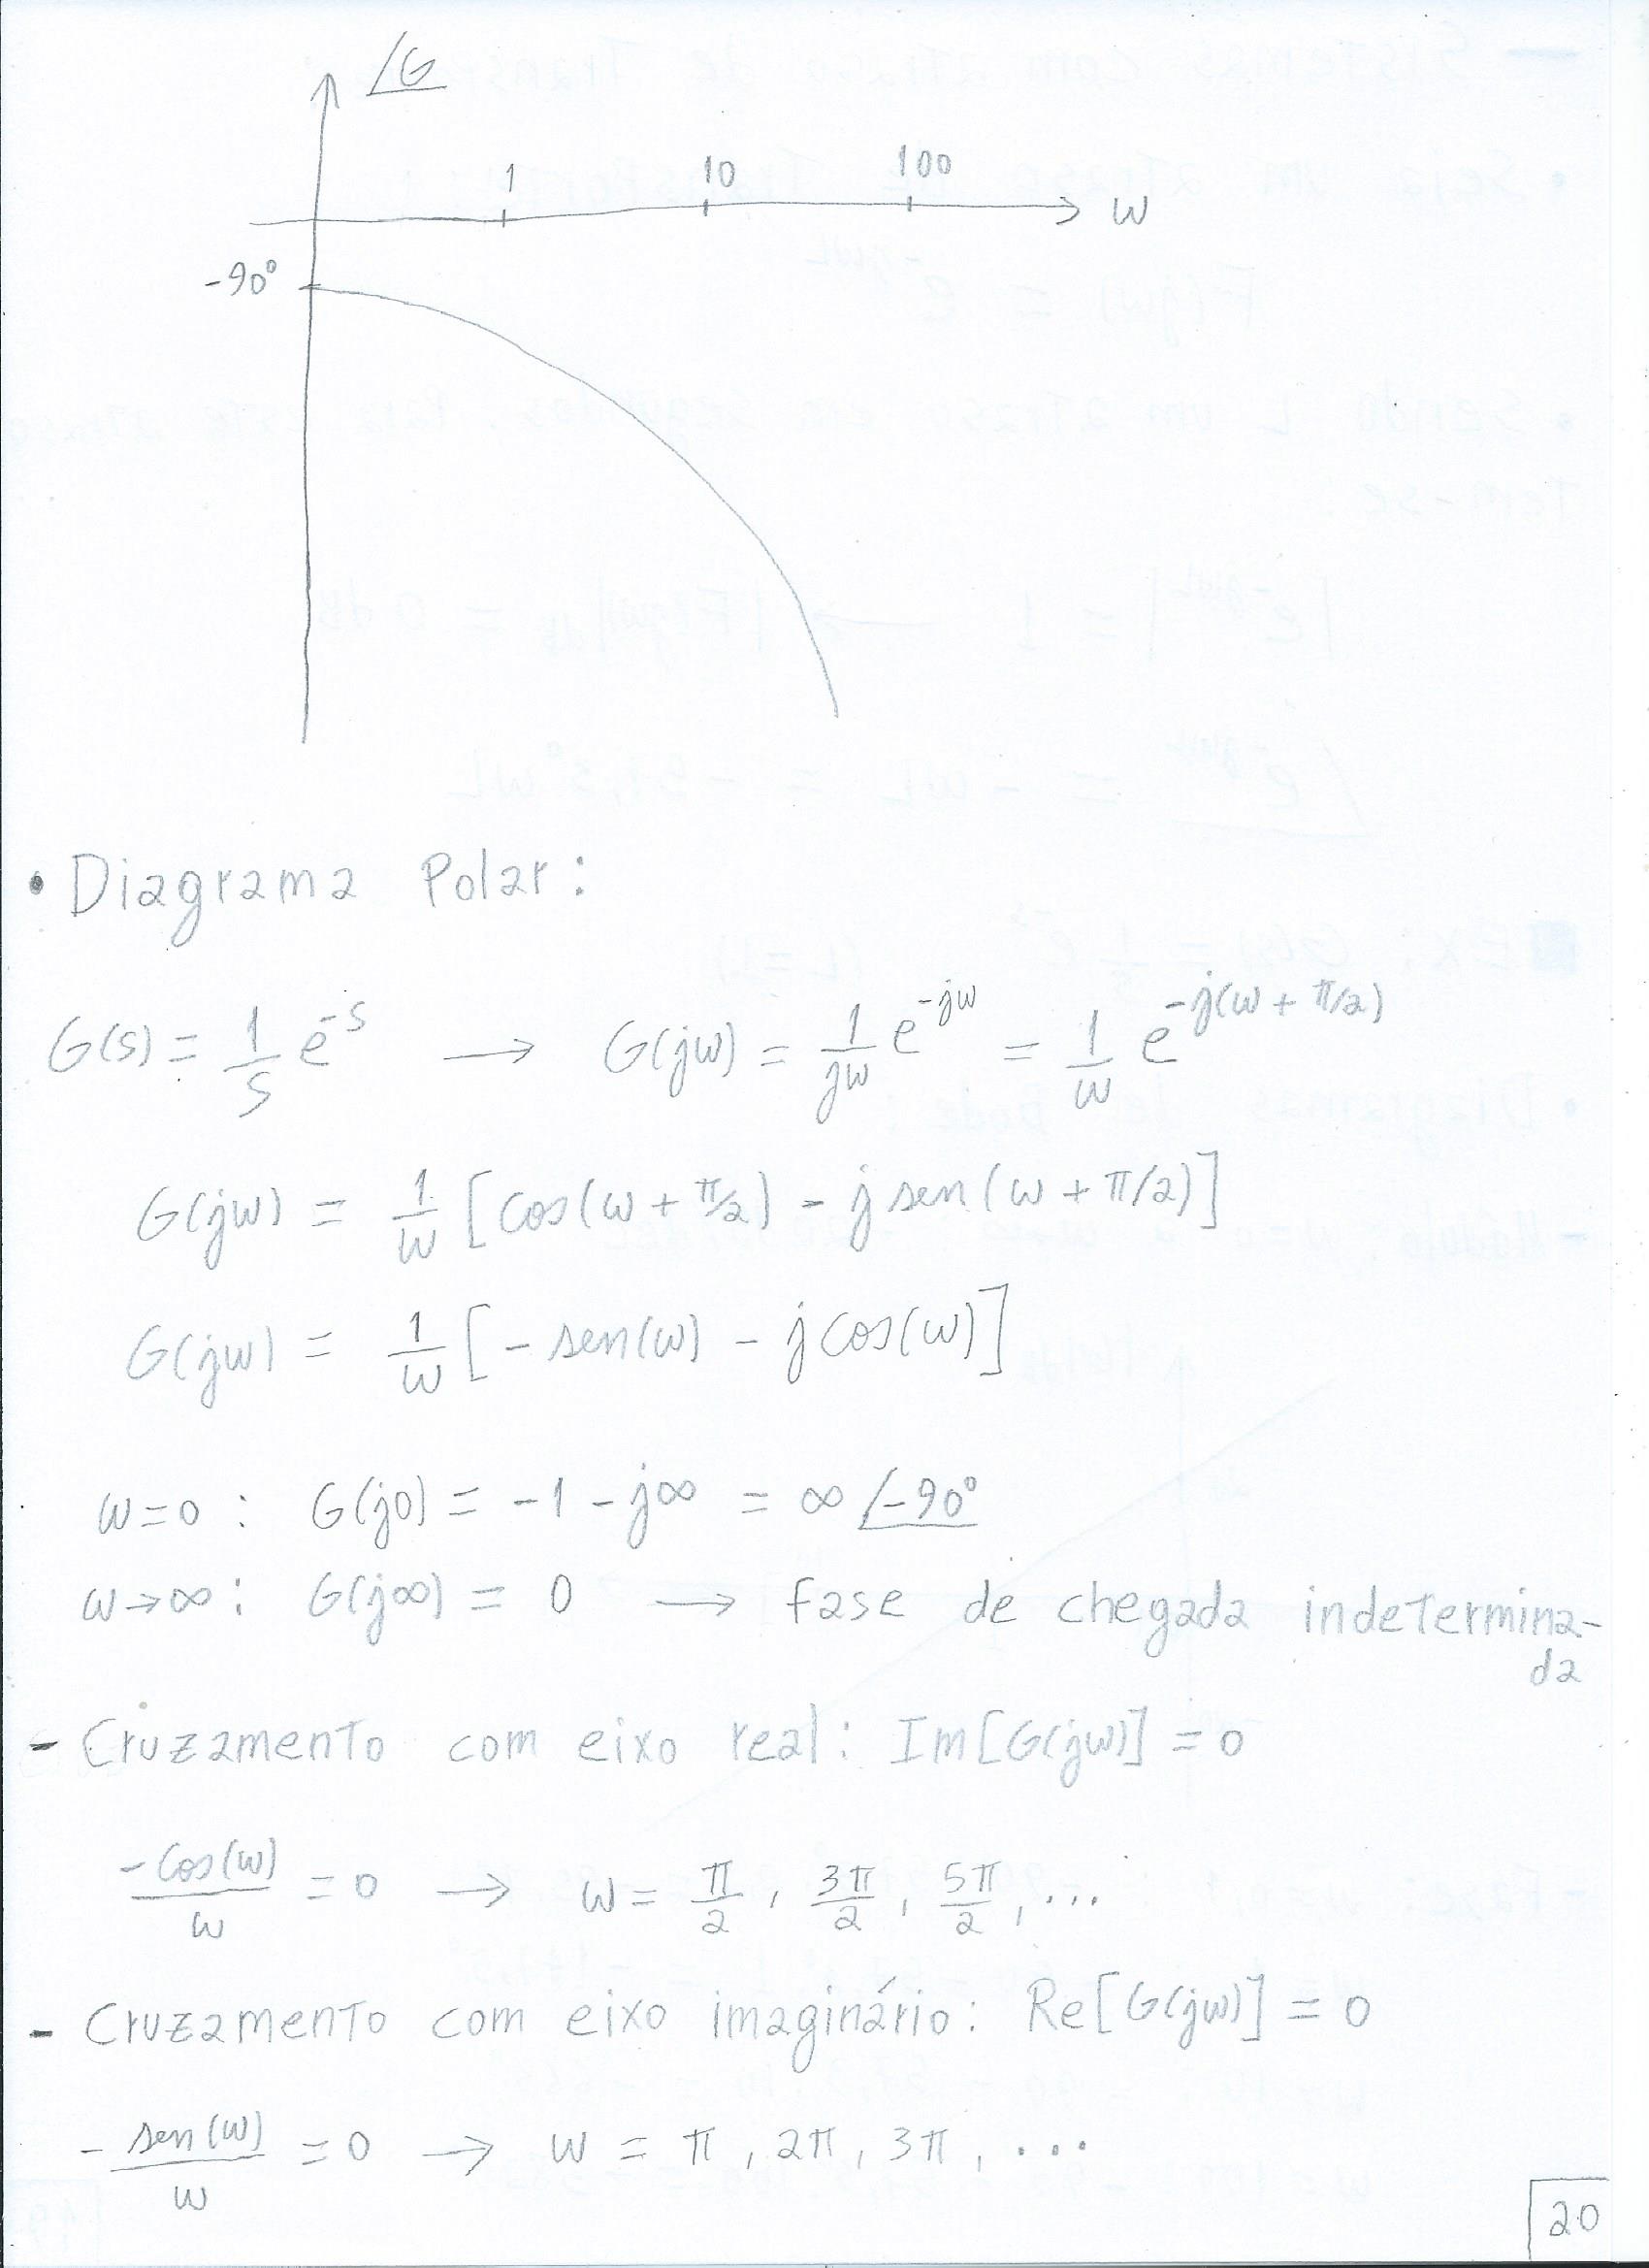 ∠G
1 10 100 ω
-90°
• Diagrama Polar:
G(s) = 1/s e^-s → G(jω) = 1/jω e^-jω = 1/ω e^-j(ω + π/2)
G(jω) = 1/ω [cos(ω + π/2) - j sen(ω + π/2)]
G(jω) = 1/ω [- sen(ω) - j cos(ω)]
ω=0 : G(j0) = -1 - j∞ = ∞ ∠-90°
ω→∞ : G(j∞) = 0 → fase de chegada indetermina-
da
- Cruzamento com eixo real: Im[G(jω)] = 0
-cos(ω)/ω = 0 → ω = π/2, 3π/2, 5π/2, ...
- Cruzamento com eixo imaginário: Re[G(jω)] = 0
- sen(ω)/ω = 0 → ω = π, 2π, 3π, ...
20